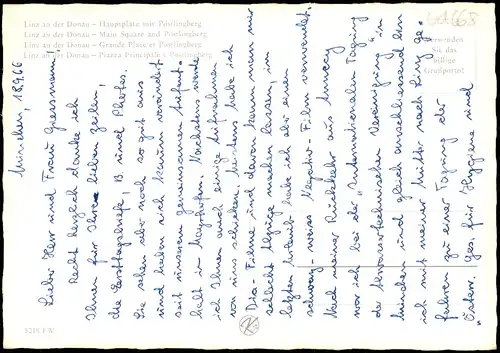 Linz an der Donau – Hauptplatz mit Pöstlingberg
Linz an der Donau – Main Square and Pöstlingberg
Linz an der Donau – Grande Place et Pöstlingberg
Linz an der Donau – Piazza Principale e Pöstlingberg
Verwenden
Sie das
billige
Grußporto!
München, 18.9.66
Liebe Herr und Frau
Recht herzlich danke ich
Ihnen für Ihre lieben Zeilen,
die Festtagsbriefe B und Photos.
Sie sehen aber noch so gut aus
und haben sich kaum verändert
seit unserem gemeinsamen Aufent-
halt in Mayrhofen. Nächstens werde
ich Ihnen auch einige Aufnahmen
von uns schicken. Meistens habe ich
Dia-Filme und davon kann man nur
schlecht Abzüge machen lassen, im
letzten Urlaub habe ich aber einen
schwarz-weiss Negativ-Film verwendet.
Nach meiner Rückkehr aus
war ich bei der "Internationalen Tagung
der Abwassertechnischen Vereinigung" in
München und gleich anschliessend bin
ich mit meiner Mutter nach Linz ge-
fahren zu einer Tagung der
"Österr. Ges. für Hygiene und
5218 FW